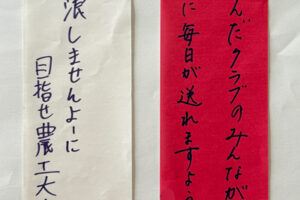 んだクラブのみんなが
に毎日が送れますよう
浪しませんよーに
目指せ農工大